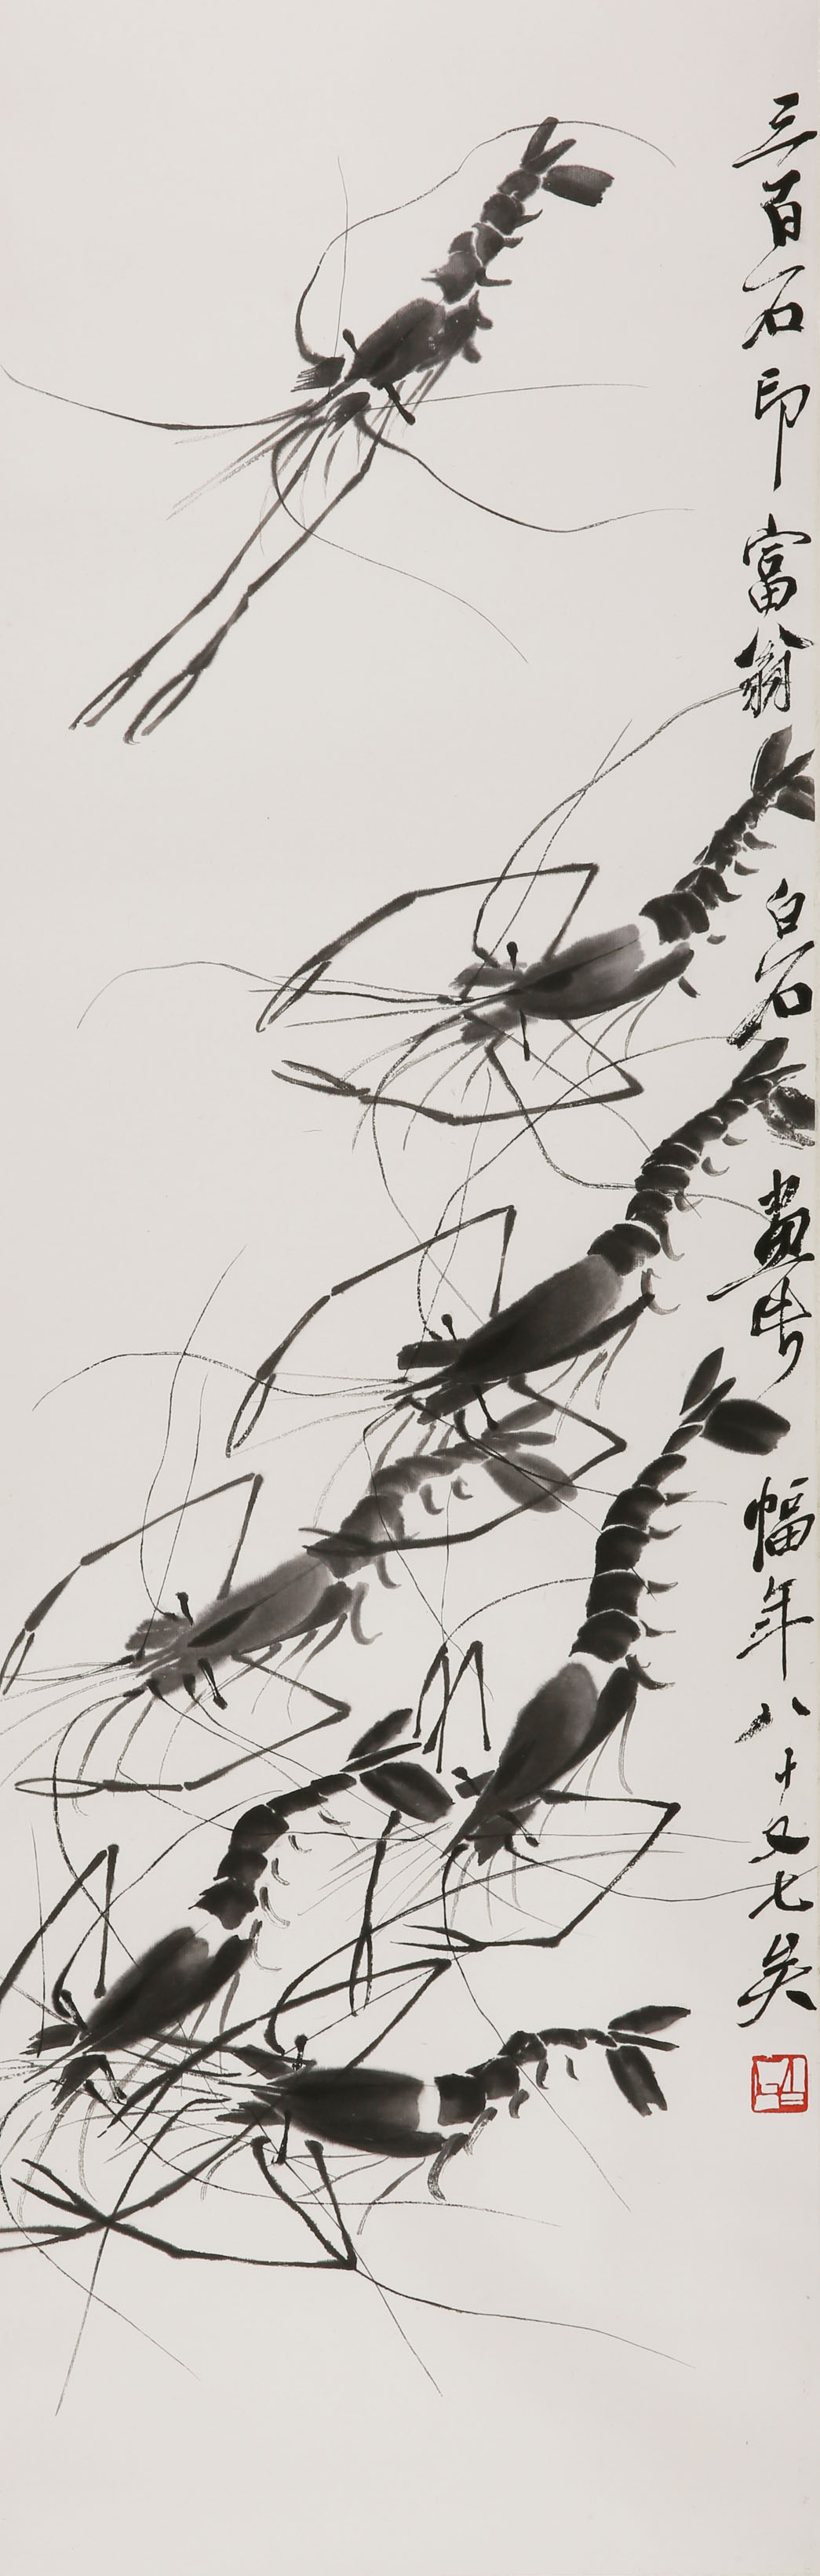 三百石印富翁白石画者幅年八十又七矣